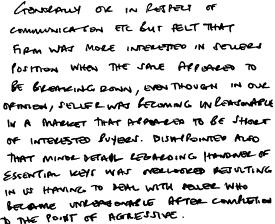 GENERALLY OR IN RESPECT OF
COMMUNICATION ETC BUT FELT THAT
FIRM WAS MORE INTERESTED IN SELLERS
POSITION WHEN THE SALE APPEARED TO
BE BREAKING DOWN, EVEN THOUGH IN OUR
OPINION, SELLER WAS BECOMING UNREASONABLE
IN A MARKET THAT APPEARED TO BE SHORT
OF INTERESTED BUYERS. DISAPPOINTED ALSO
THAT MINOR DETAIL REGARDING HANDOVER OF
ESSENTIAL KEYS WAS OVERLOOKED RESULTING
IN US HAVING TO DEAL WITH SELLER WHO
BECAME UNREASONABLE AFTER COMPLETION
TO THE POINT OF AGGRESSIVE.